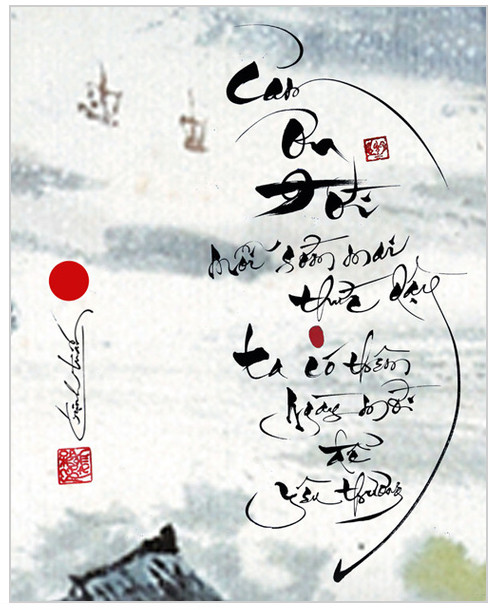 Cảm
Ơn
Đời
mỗi sớm mai
thức dậy
ta có thêm
Ngày mới
để
yêu thương